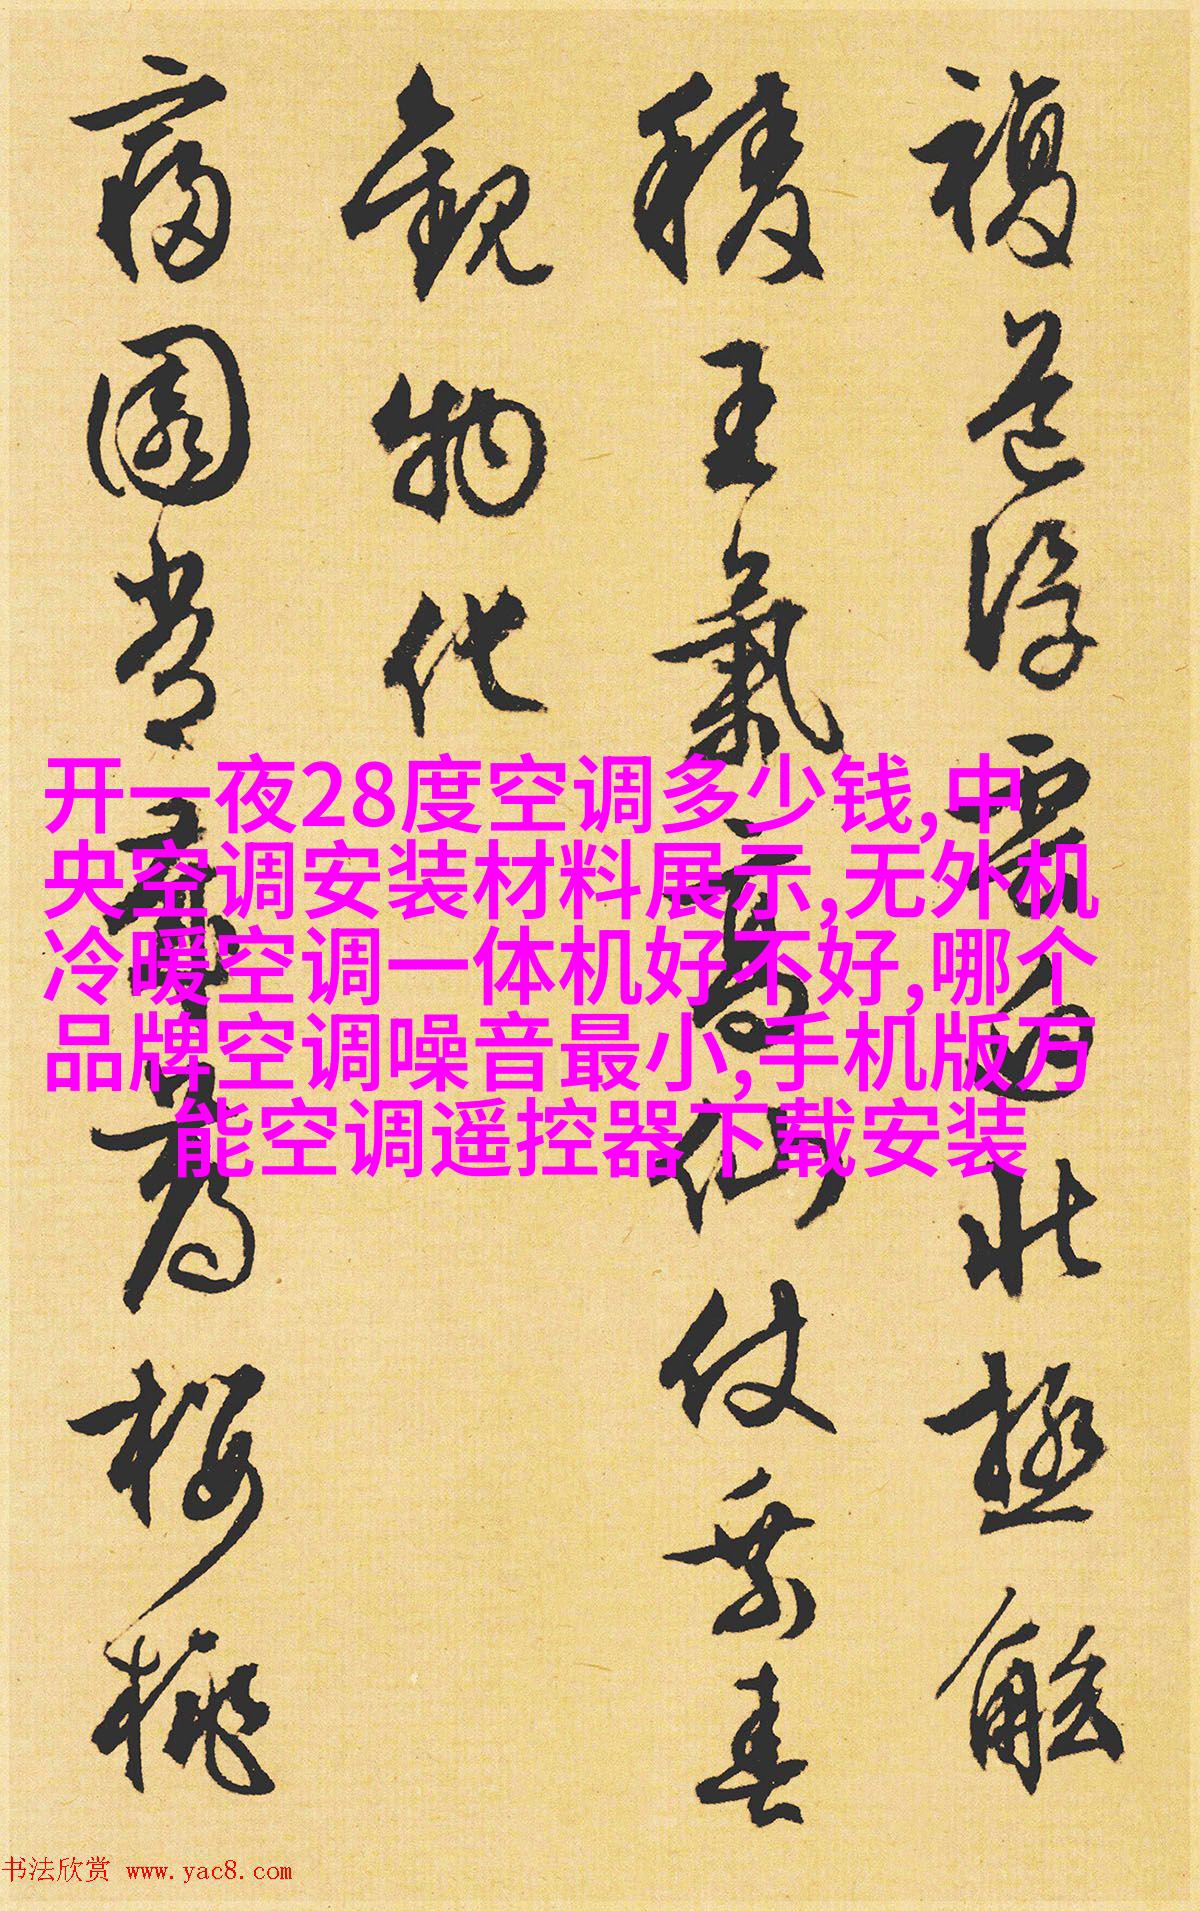 複道浮雲北極觚
稜王氣高仙仗乘春
觀物化
園薦櫻桃
开一夜28度空调多少钱,中
央空调安装材料展示,无外机
冷暖空调一体机好不好,哪个
品牌空调噪音最小,手机版万
能空调遥控器下载安装
书法欣赏 www.yac8.com